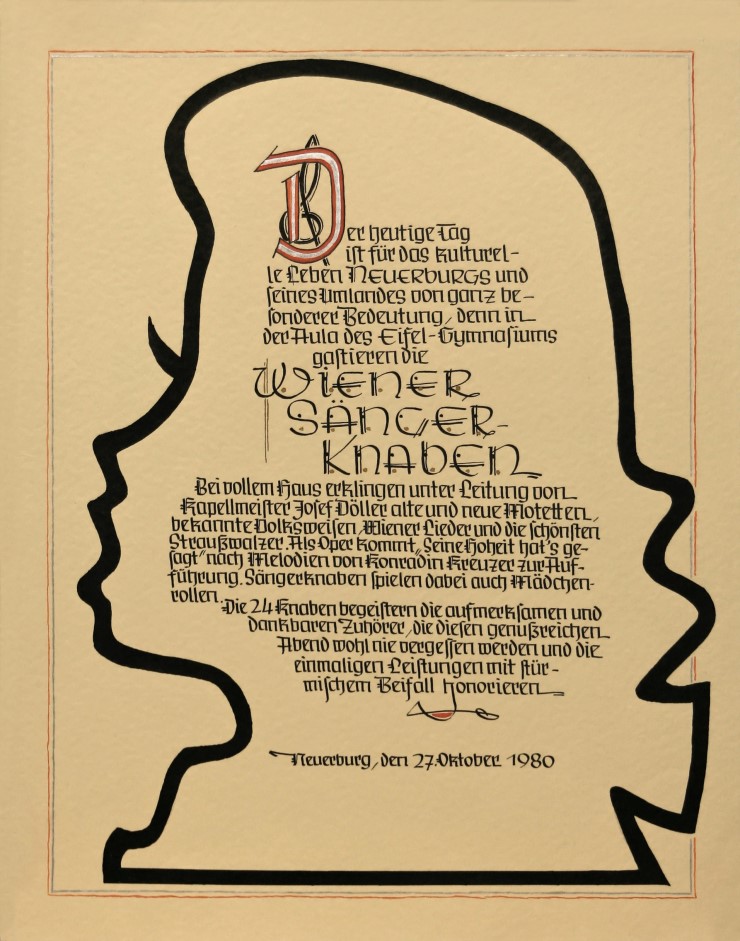 Der heutige Tag
ist für das kulturel-
le Leben NEUERBURGS und
seines Umlandes von ganz be-
sonderer Bedeutung, denn in
der Aula des Eifel-Gymnasiums
gastieren die
WIENER
SÄNGER-
KNABEN
Bei vollem Haus erklingen unter Leitung von
Kapellmeister Josef Döller alte und neue Motetten,
bekannte Volksweisen, Wiener Lieder und die schönsten
Straußwalzer. Als Oper kommt „Seine Hoheit hat's ge-
sagt" nach Melodien von Konradin Kreuzer zur Auf-
führung. Sängerknaben spielen dabei auch Mädchen-
rollen.
Die 24 Knaben begeistern die aufmerksamen und
dankbaren Zuhörer, die diesen genußreichen
Abend wohl nie vergessen werden und die
einmaligen Leistungen mit stür-
mischem Beifall honorieren
Neuerburg, den 27. Oktober 1980